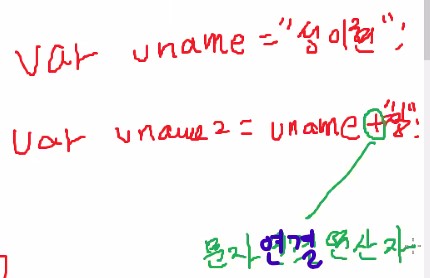 var uname = "성이현";
var uname2 = uname + "님";
문자 연결 연산자